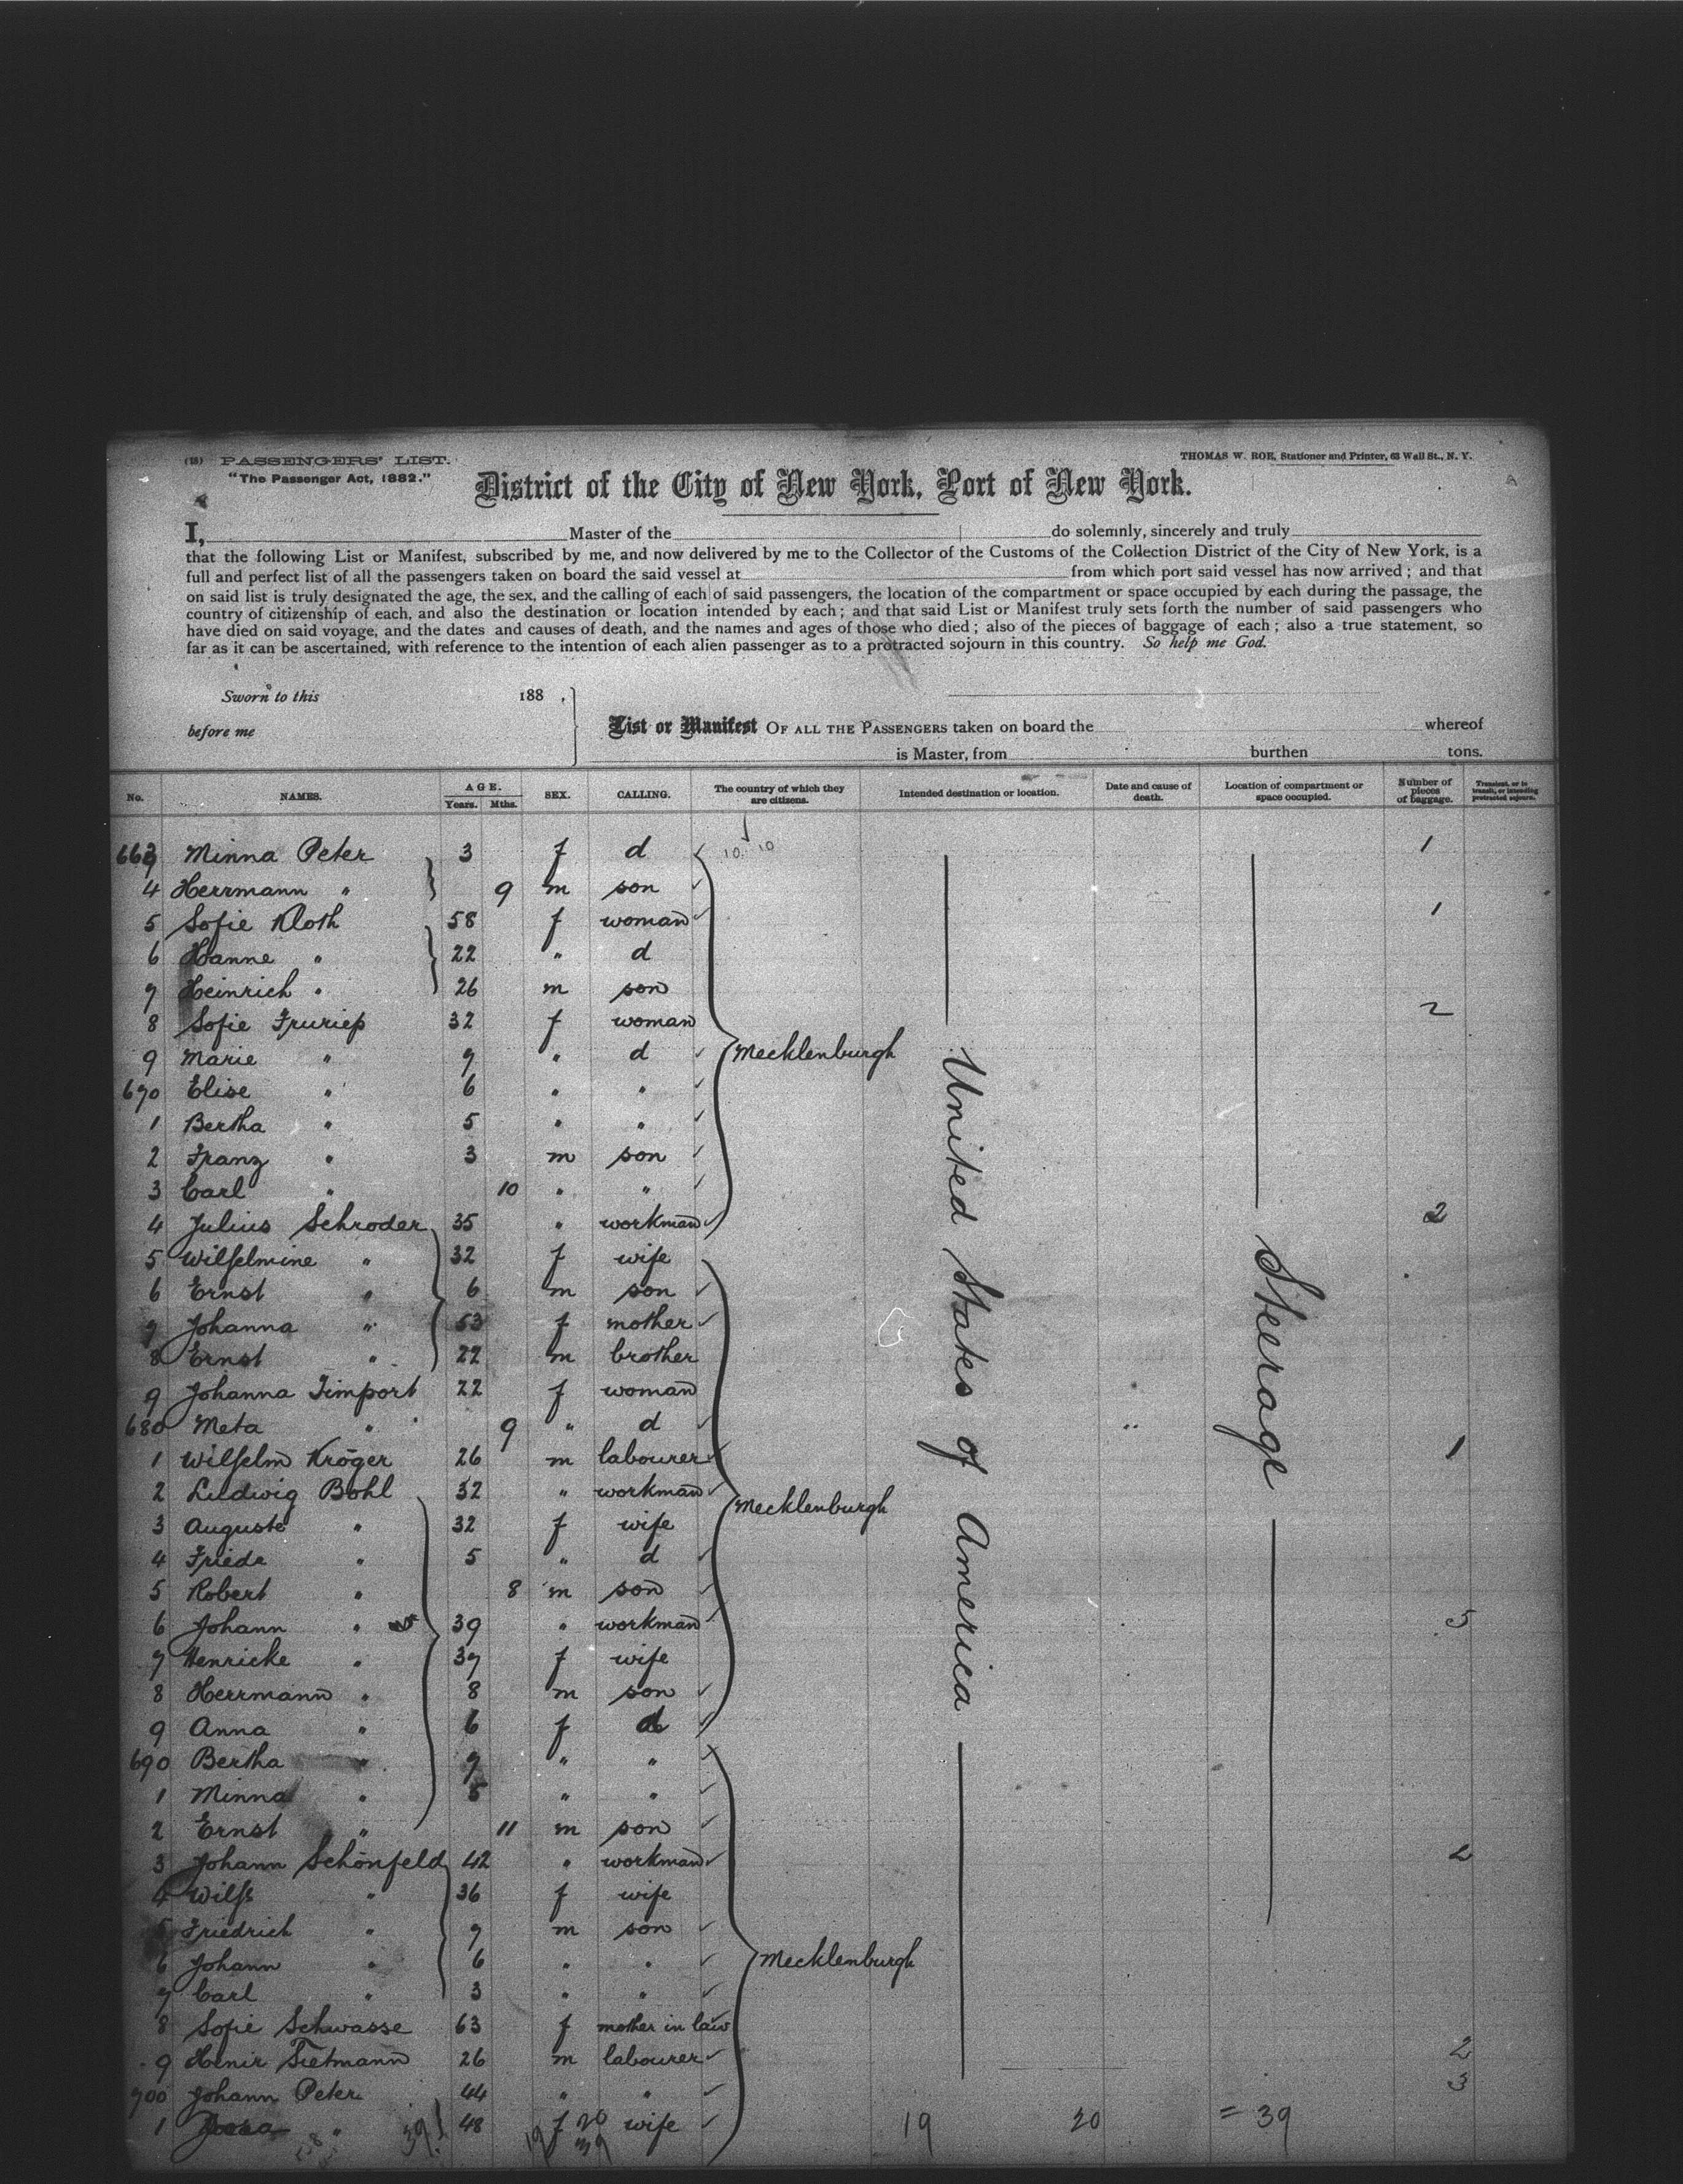 (18) PASSENGERS' LIST.
THOMAS W. ROE, Stationer and Printer, 63 Wall St., N. Y.
"The Passenger Act, 1882."
District of the City of New York, Port of New York.
I, Master of the do solemnly, sincerely and truly
that the following List or Manifest, subscribed by me, and now delivered by me to the Collector of the Customs of the Collection District of the City of New York, is a
full and perfect list of all the passengers taken on board the said vessel at from which port said vessel has now arrived ; and that
on said list is truly designated the age, the sex, and the calling of each of said passengers, the location of the compartment or space occupied by each during the passage, the
country of citizenship of each, and also the destination or location intended by each ; and that said List or Manifest truly sets forth the number of said passengers who
have died on said voyage, and the dates and causes of death, and the names and ages of those who died ; also of the pieces of baggage of each ; also a true statement, so
far as it can be ascertained, with reference to the intention of each alien passenger as to a protracted sojourn in this country. So help me God.
Sworn to this 188 ,
before me
List or Manifest OF ALL THE PASSENGERS taken on board the whereof
is Master, from burthen tons.
No. NAMES. AGE. Years. Mths. SEX. CALLING. The country of which they are citizens. Intended destination or location. Date and cause of death. Location of compartment or space occupied. Number of pieces of baggage. Transient, or in transit, or intending protracted sojourn.
663 Minna Peter 3 f d 10 10 1
4 Herrmann " 9 m son
5 Sofie Kloth 58 f woman 1
6 Hanne " 22 " d
7 Heinrich " 26 m son
8 Sofie Fruriep 32 f woman 2
9 Marie " 7 " d Mecklenburgh
670 Elise " 6 " "
1 Bertha " 5 " "
2 Franz " 3 m son
3 Carl " 10 " "
4 Julius Schroder 35 " workman 2
5 Wilhelmine " 32 f wife
6 Ernst " 6 m son
7 Johanna " 53 f mother
8 Ernst " 22 m brother
9 Johanna Timport 22 f woman
680 Meta " 9 " d
1 Wilhelm Kröger 26 m labourer 1
2 Ludwig Bohl 32 " workman Mecklenburgh
3 Auguste " 32 f wife
4 Frieda " 5 " d
5 Robert " 8 m son
6 Johann " 39 " workman 5
7 Henricke " 37 f wife
8 Herrmann " 8 m son
9 Anna " 6 f d
690 Bertha " 7 " "
1 Minna " 5 " "
2 Ernst " 11 m son
3 Johann Schönfeld 42 " workman 2
4 Wilh " 36 f wife
5 Friedrich " 7 m son
6 Johann " 6 " " Mecklenburgh
7 Carl " 3 " "
8 Sofie Schwasse 63 f mother in law
9 Heinr Tietmann 26 m labourer 2
700 Johann Peter 44 " " 3
1 " 48 f wife
United States of America
Steerage
39 19 20 39
19 20 = 39